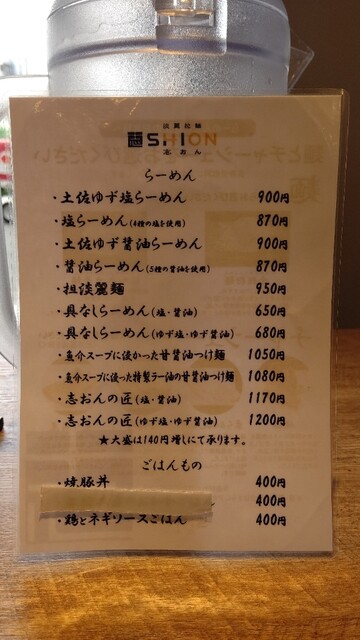 淡麗拉麺
SHION
志おん
らーめん
・土佐ゆず塩らーめん 900円
・塩らーめん(4種の塩を使用) 870円
・土佐ゆず醤油らーめん 900円
・醤油らーめん(5種の醤油を使用) 870円
・担淡麗麺 950円
・具なしらーめん(塩・醤油) 650円
・具なしらーめん(ゆず塩・ゆず醤油) 680円
・魚介スープに浸かった甘醤油つけ麺 1050円
・魚介スープに浸った特製ラー油の甘醤油つけ麺 1080円
・志おんの匠(塩・醤油) 1170円
・志おんの匠(ゆず塩・ゆず醤油) 1200円
★大盛は140円増しにて承ります。
ごはんもの
・焼豚丼 400円
400円
・鶏とネギソースごはん 400円